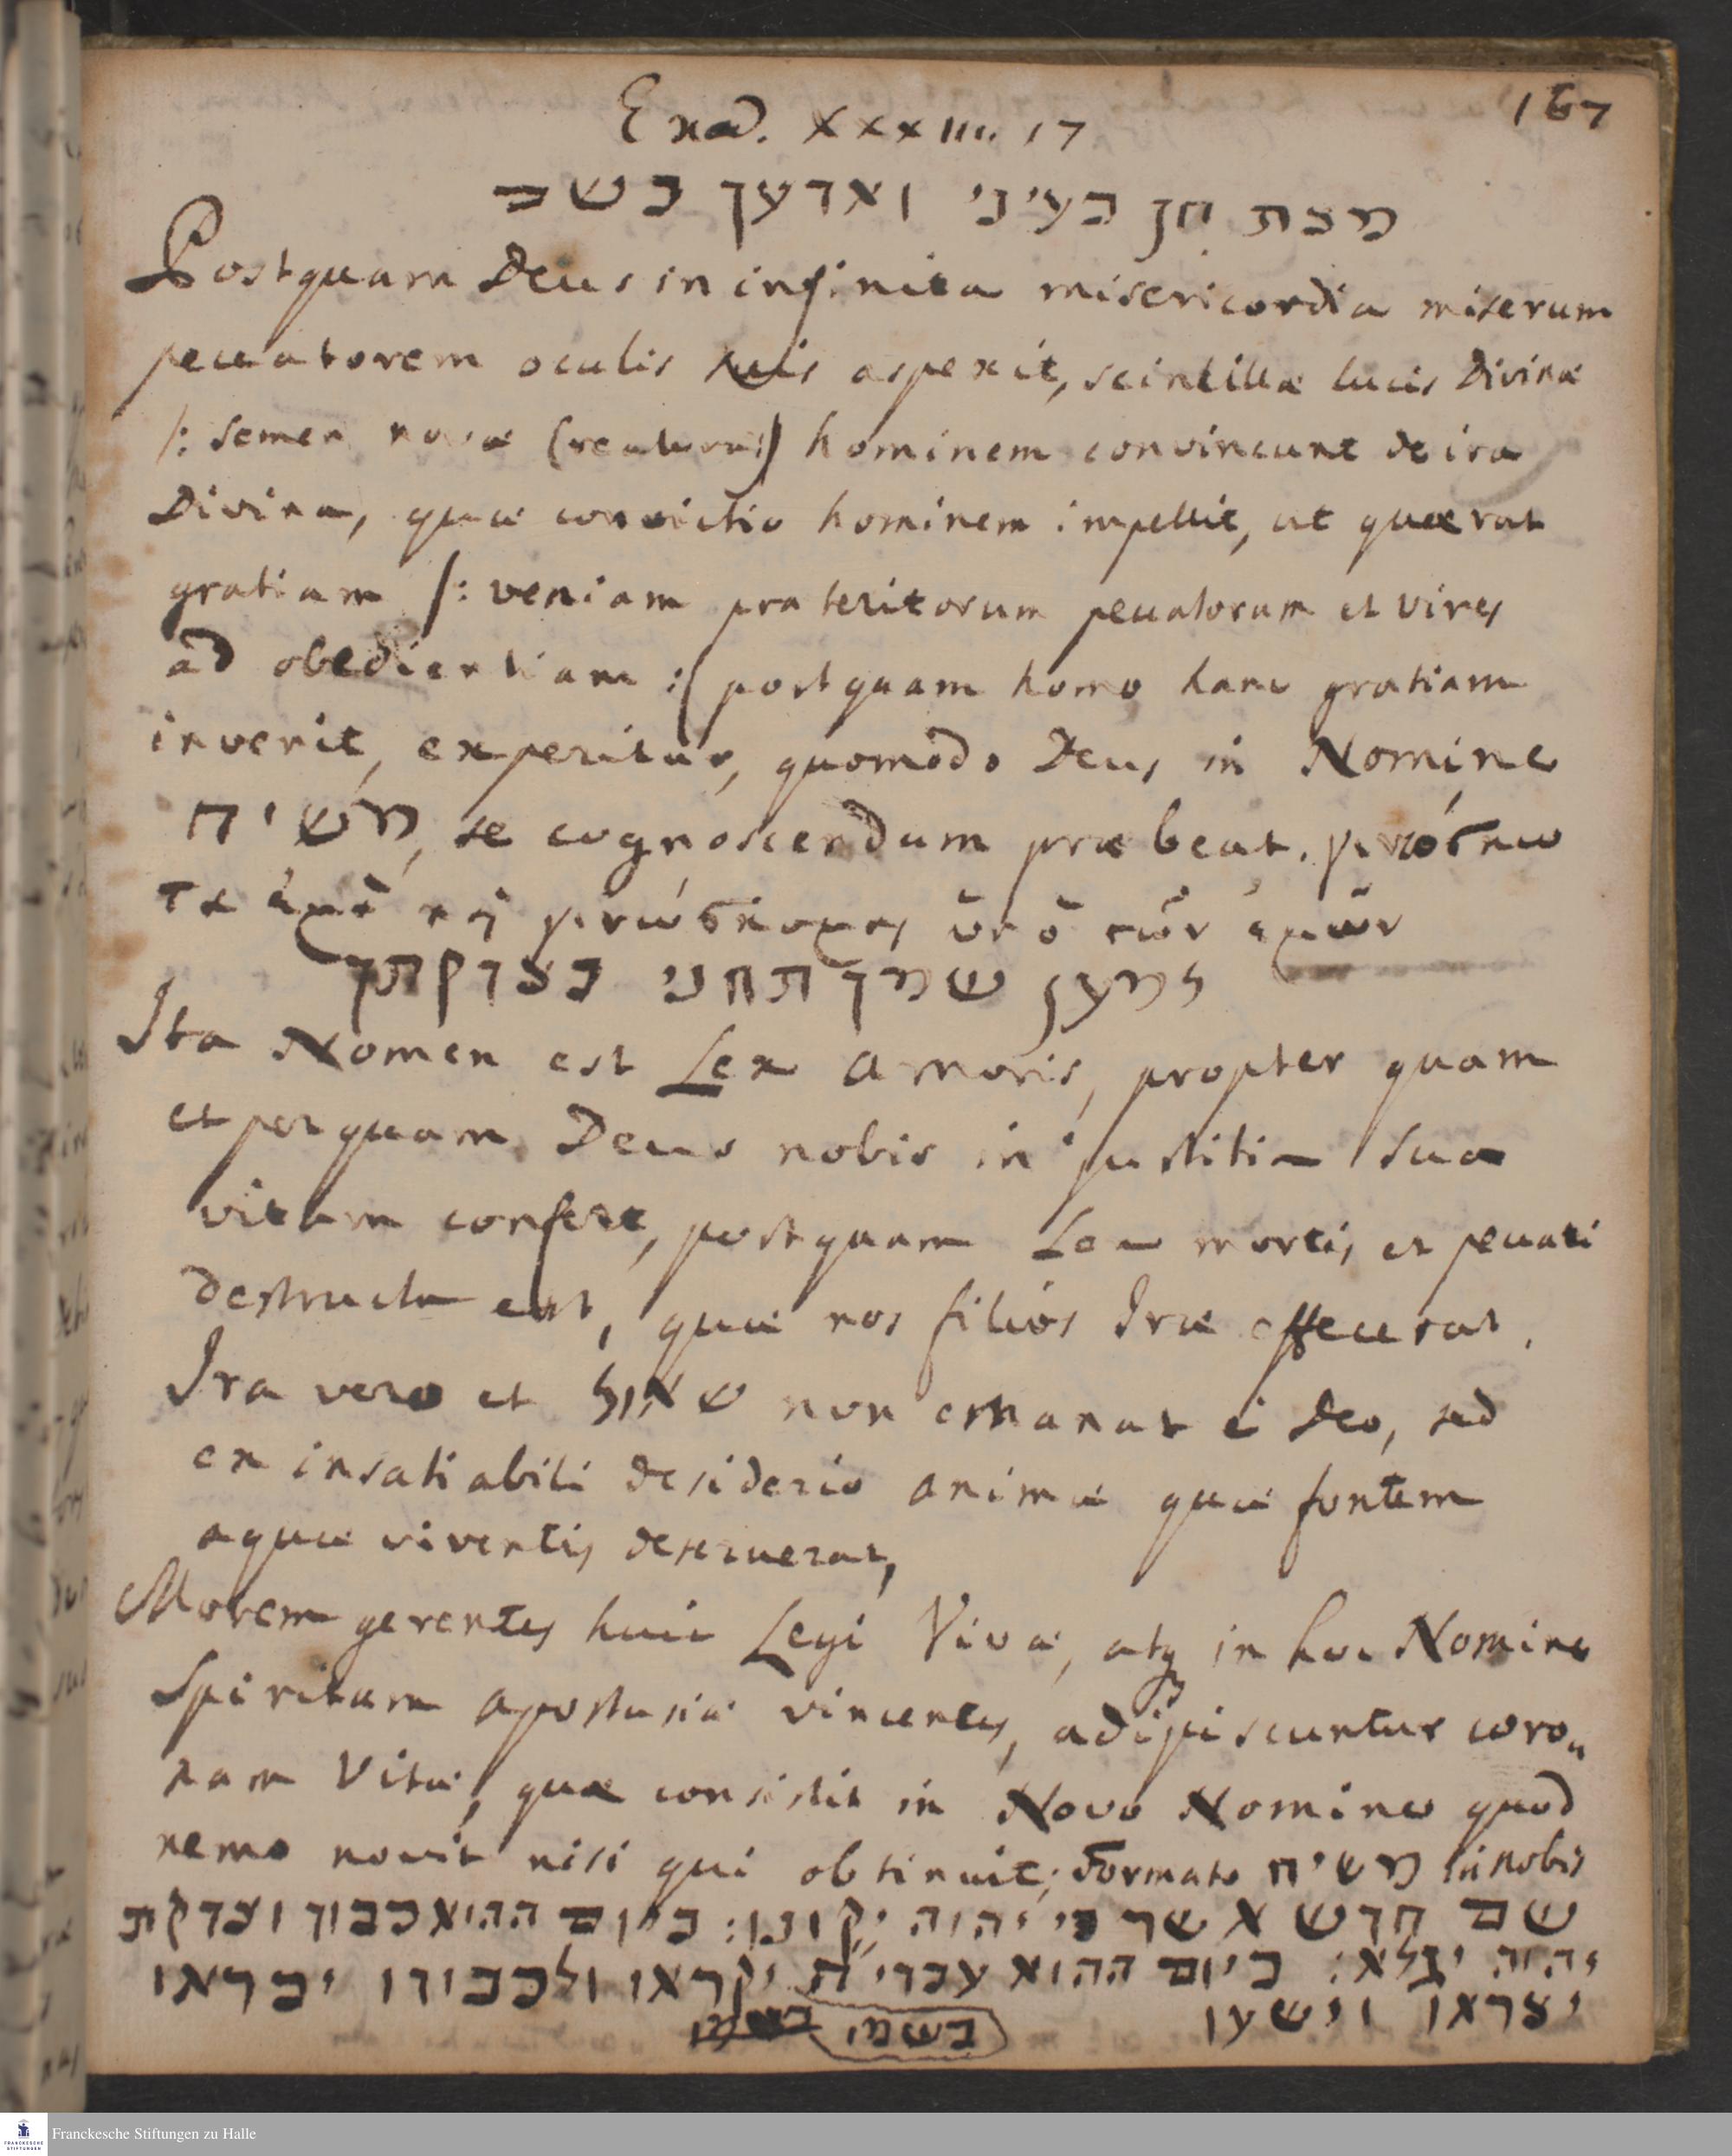 167
Exod. XXXIII. 17
מצאת חן בעיני ואדעך בשם
Postquam Deus in infinita misericordia miserum
peccatorem oculis suis aspexit, scintillæ lucis Divinæ
/: semen novæ creaturæ :/ hominem convincunt de ira
Divina, quæ convictio hominem impellit, ut quærat
gratiam /: veniam præteritorum peccatorum et vires
ad obedientiam :/ postquam homo hanc gratiam
invenit, experitur, quomodo Deus in Nomine
משיח, se cognoscendum præbeat. γινώσκω
τὰ ἐμὰ καὶ γινώσκομαι ὑπὸ τῶν ἐμῶν
למען שמך תחני בצדקתך
Ita Nomen est Lex Amoris, propter quam
et per quam Deus nobis in justitia sua
vitam confert, postquam Lex mortis et peccati
destructa est, quæ nos filios Iræ effecerat.
Ira vero et שאול non emanat è Deo, sed
ex insatiabili desiderio animæ quæ fontem
aquæ viventis deseruerat,
Morem gerentes huic Legi Vivæ, atq in hoc Nomine
Spiritum apostasiæ vincentes, adipiscuntur coro„
nam Vitæ, quæ consistit in Novo Nomine quod
nemo novit nisi qui obtinuit; Formato משיח in nobis
שם חדש אשר פי יהוה יקובנו: ביום ההוא כבוד וצדקת
יהוה יגלא: ביום ההוא עבדי יקראו ולכבודו יבראו
יצראו וישעו
בשמו בשמו
Franckesche Stiftungen zu Halle
FRANCKESCHE STIFTUNGEN